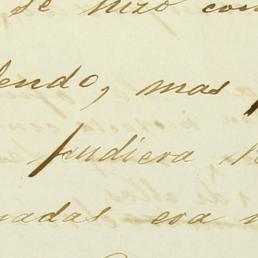 se hizo con
endo, mas
pudiera
nadas era